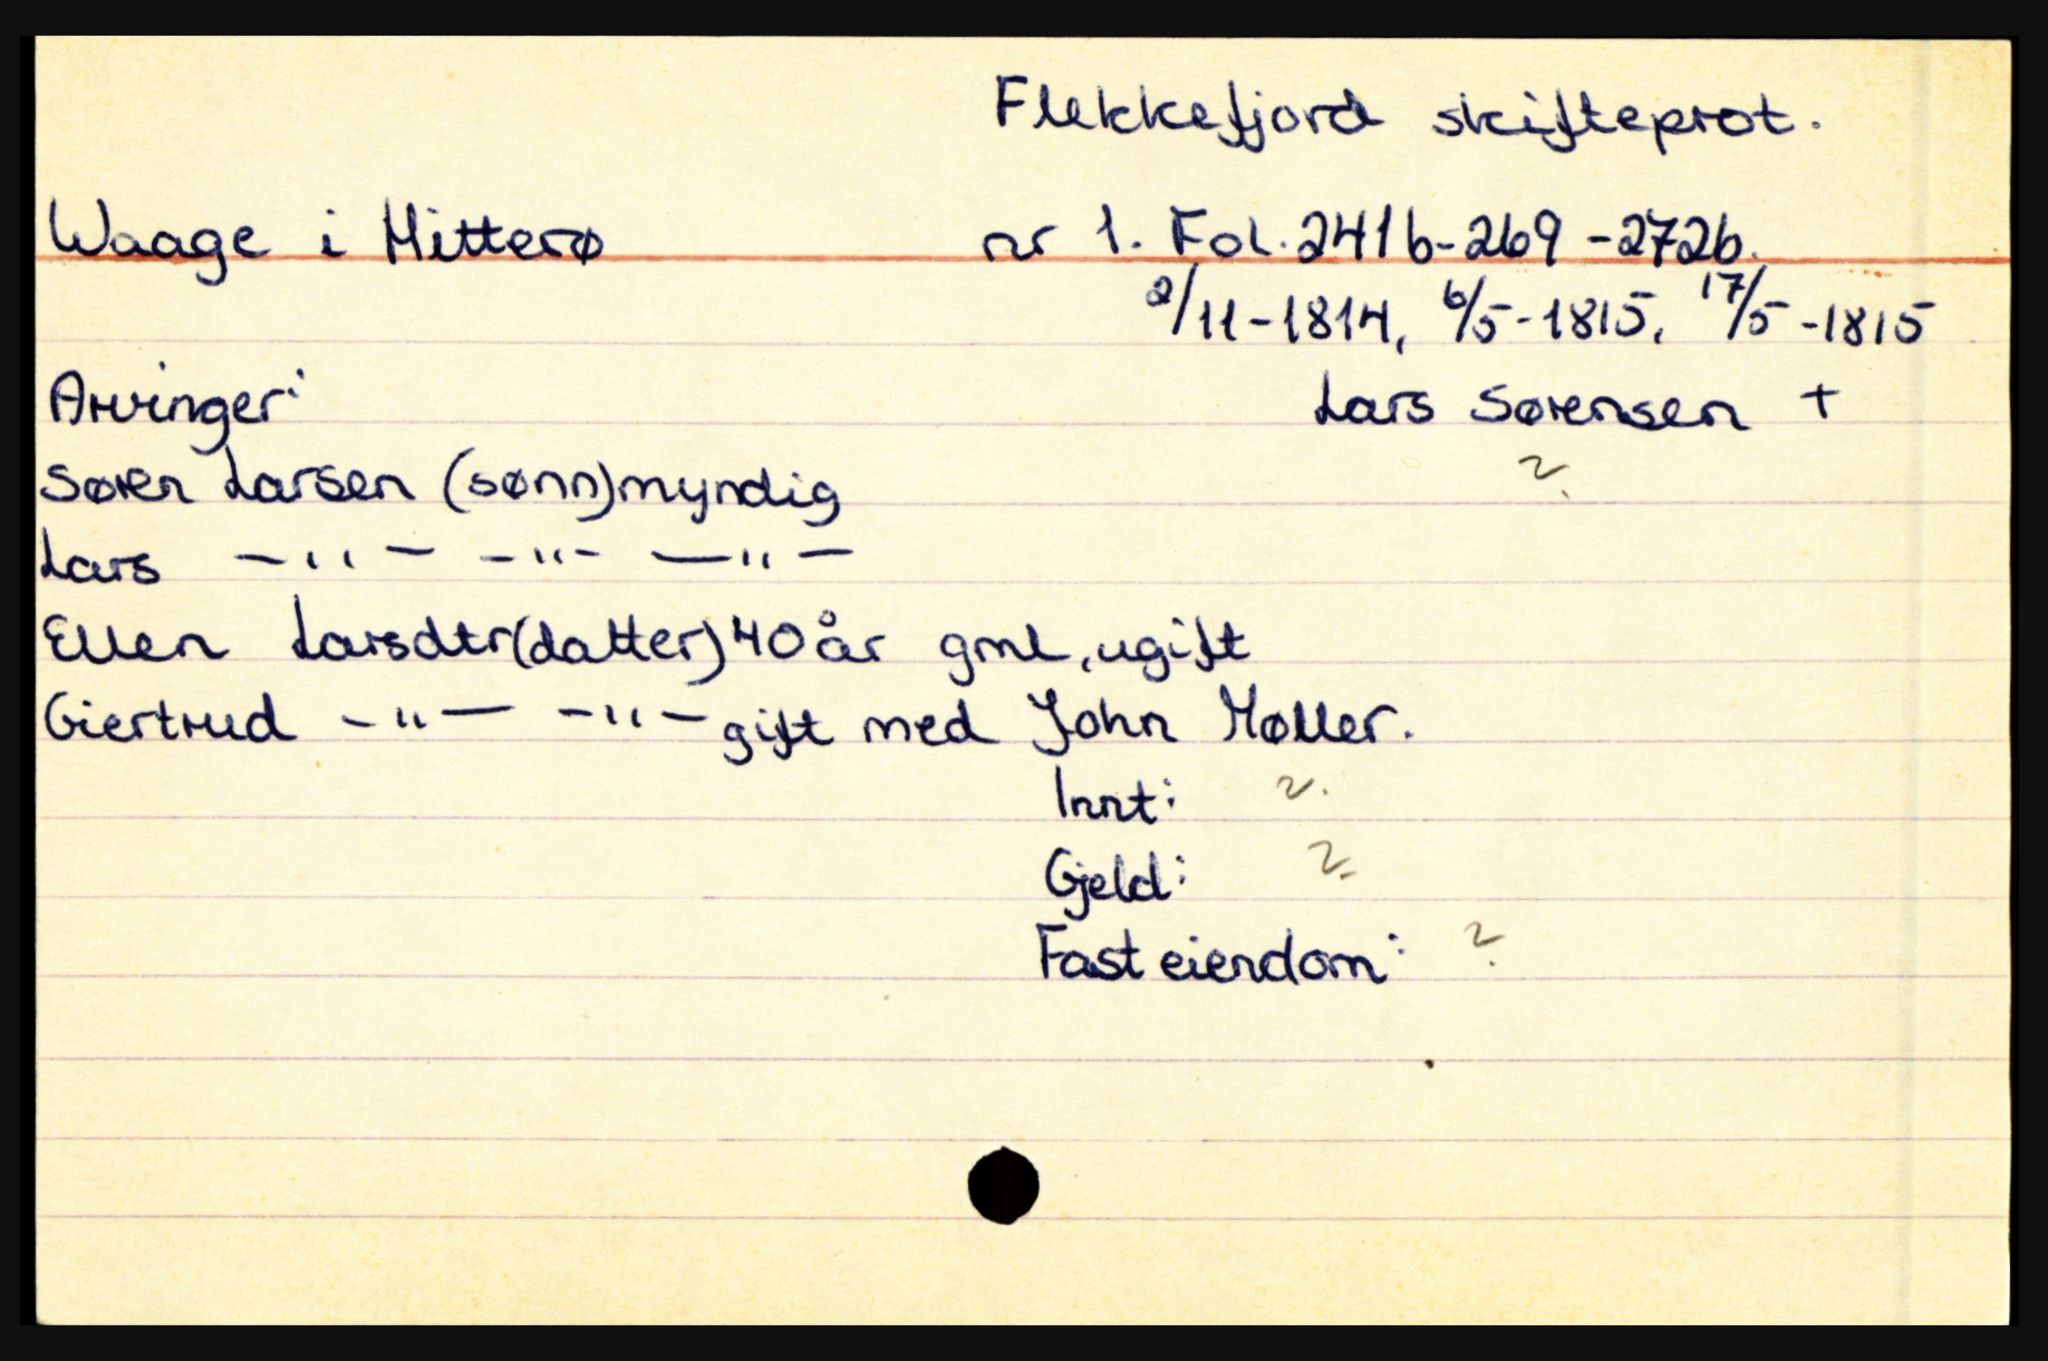 Flekkefjord skifteprot.
Waage i Hitterø nr 1. Fol. 241b-269-272b.
2/11-1814, 6/5-1815, 17/5-1815
Arvinger: Lars Sørensen +
Søren Larsen (sønn) myndig ?
Lars -"- -"- -"-
Ellen Larsdtr (datter) 40 år gml, ugift
Giertrud -"- -"- gift med John Møller.
Innt: ?
Gjeld: ?
Fast eiendom: ?